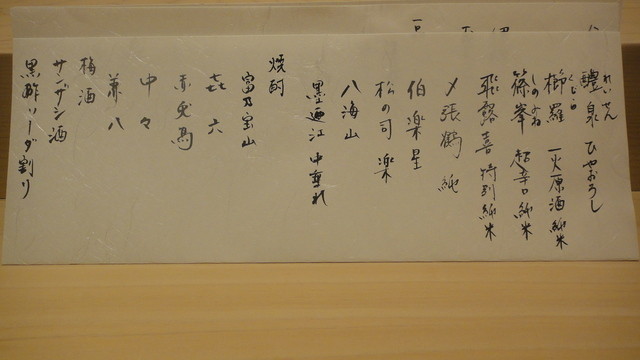 醴泉 ひやおろし
れいせん
櫛羅 一火原酒純米
くじら
篠峯 超辛口純米
しのみね
飛露喜 特別純米
〆張鶴 純
伯楽星
松の司 楽
八海山
墨廼江 中垂れ
焼酎
富乃宝山
㐂六
赤兎馬
中々
兼八
梅酒
サンザシ酒
黒酢ソーダ割り